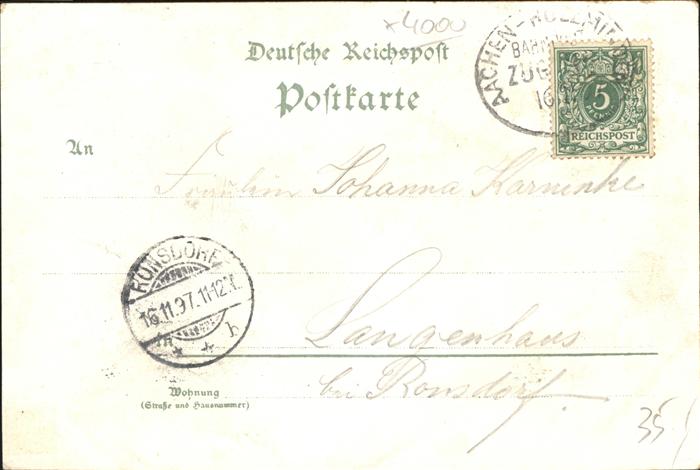 x4000
Deutsche Reichspost
Postkarte
AACHEN-HOLZMINDEN
BAHNPOST
ZUG
16
5
PFENNIG
REICHSPOST
An
Fräulein Johanna Karnenke
RONSDORF
16.11.97.11-12.V.
* * b
Langenhaus
bei Ronsdorf.
Wohnung
(Straße und Hausnummer)
35